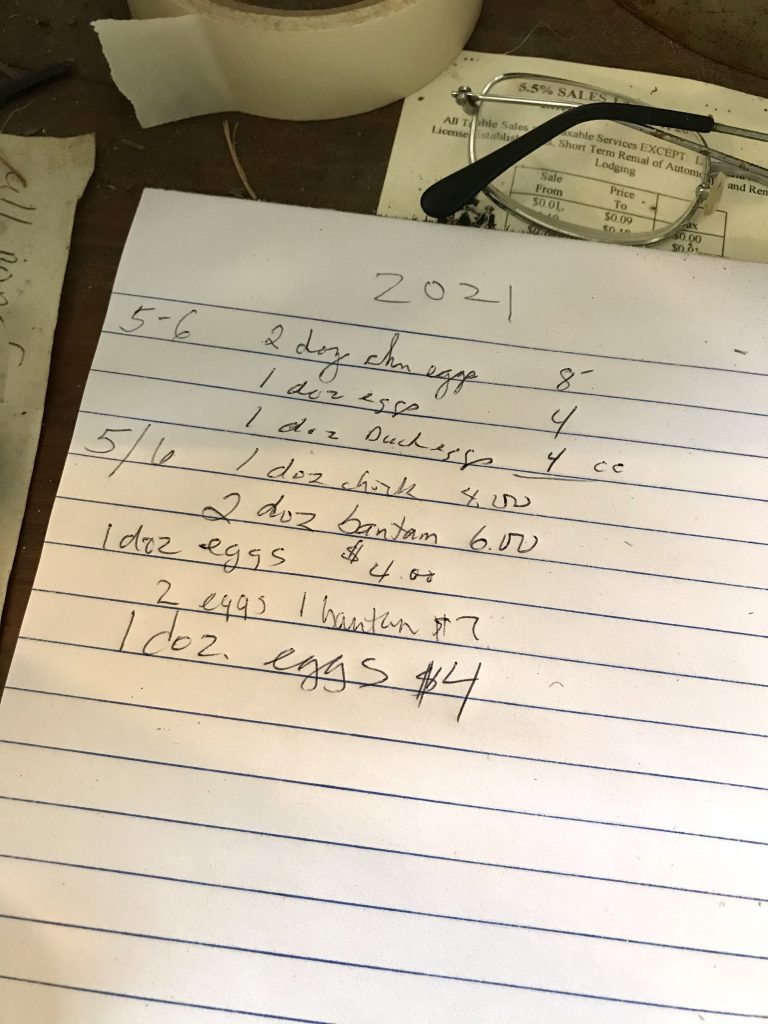 5.5% SALES
All Taxable Sales Taxable Services EXCEPT:
License Short Term Rental of
and Ren
Lodging
Sale Price
From To
$0.01 $0.09 $0.00
$0.01
2021
5-6 2 doz chn eggs 8-
1 doz eggs 4
1 doz Duck eggs 4 cc
5/6 1 doz 4.00
2 doz bantam 6.00
1 doz eggs $4.00
2 eggs 1 bantam $7
1 doz. eggs $4